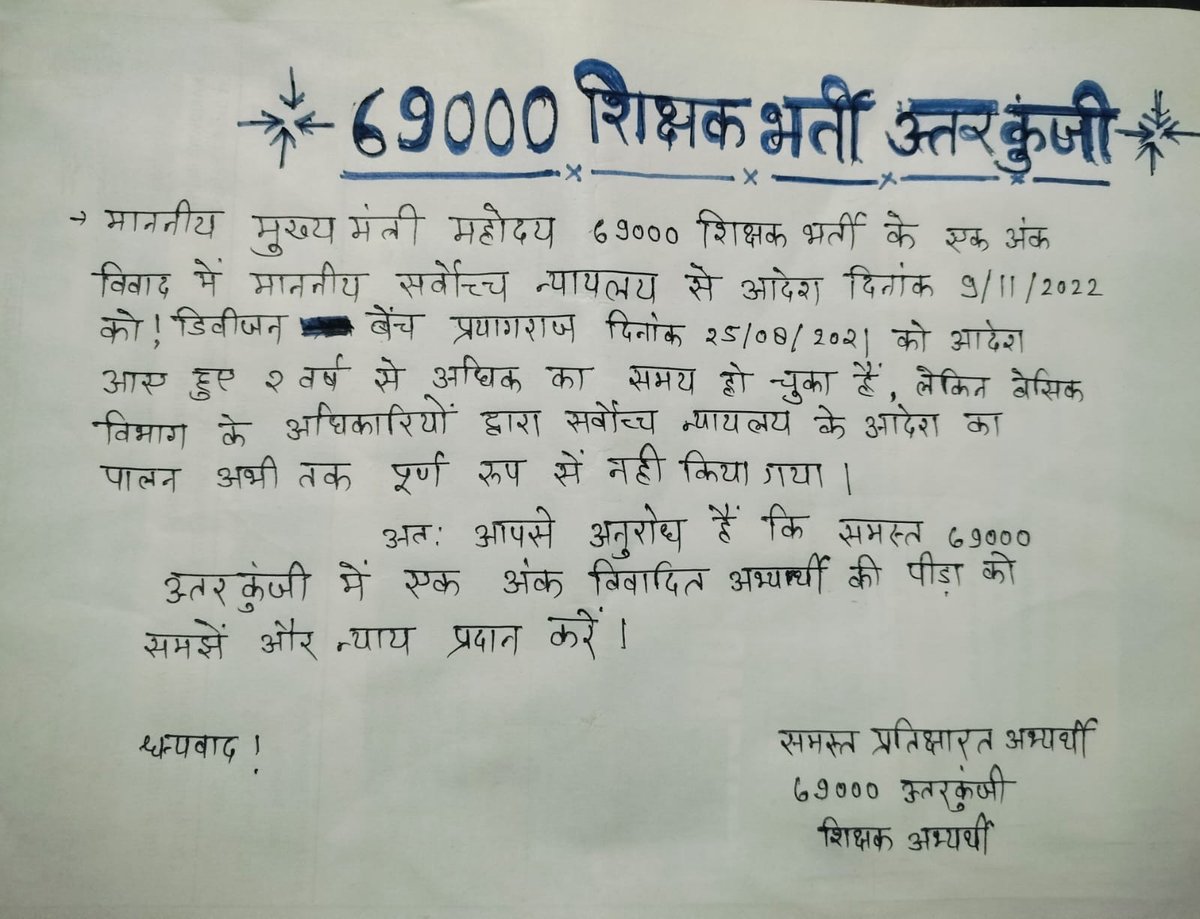 69000 शिक्षक भर्ती उत्तरकुंजी
→ माननीय मुख्य मंत्री महोदय 69000 शिक्षक भर्ती के एक अंक
विवाद में माननीय सर्वोच्च न्यायलय से आदेश दिनांक 9/11/2022
को! डिवीजन बेंच प्रयागराज दिनांक 25/08/2021 को आदेश
आए हुए 2 वर्ष से अधिक का समय हो चुका हैं, लेकिन बेसिक
विभाग के अधिकारियों द्वारा सर्वोच्च न्यायलय के आदेश का
पालन अभी तक पूर्ण रुप सें नही किया गया।
अतः आपसे अनुरोध हैं कि समस्त 69000
उत्तरकुंजी में एक अंक विवादित अभ्यर्थी की पीड़ा को
समझें और न्याय प्रदान करें।
धन्यवाद!
समस्त प्रतिक्षारत अभ्यर्थी
69000 उत्तरकुंजी
शिक्षक अभ्यर्थी